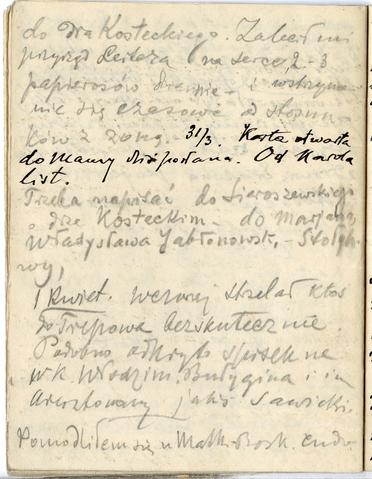 do dra Kosteckiego. Zalecił mi
przyrząd Leitera na serce, 2-3
papierosów dziennie - i wstrzyma-
nie się czasowe od stosun-
ków z żoną. - 31/3. Karta otwarta
do Mamy dziś posłana. Od Karola
list.
Trzeba napisać do Sieroszewskiego
o drze Kosteckim - do Marjana,
Władysława Jabłonowsk. -
1 kwiet. wczoraj strzelał ktoś
do Trepowa bezskutecznie.
Podobno odkryto spisek na
w. k. Włodzim. Bułygina i in.
Aresztowany jakiś Sawicki.
Pomodliłem się u Matki Bosk. cudo-